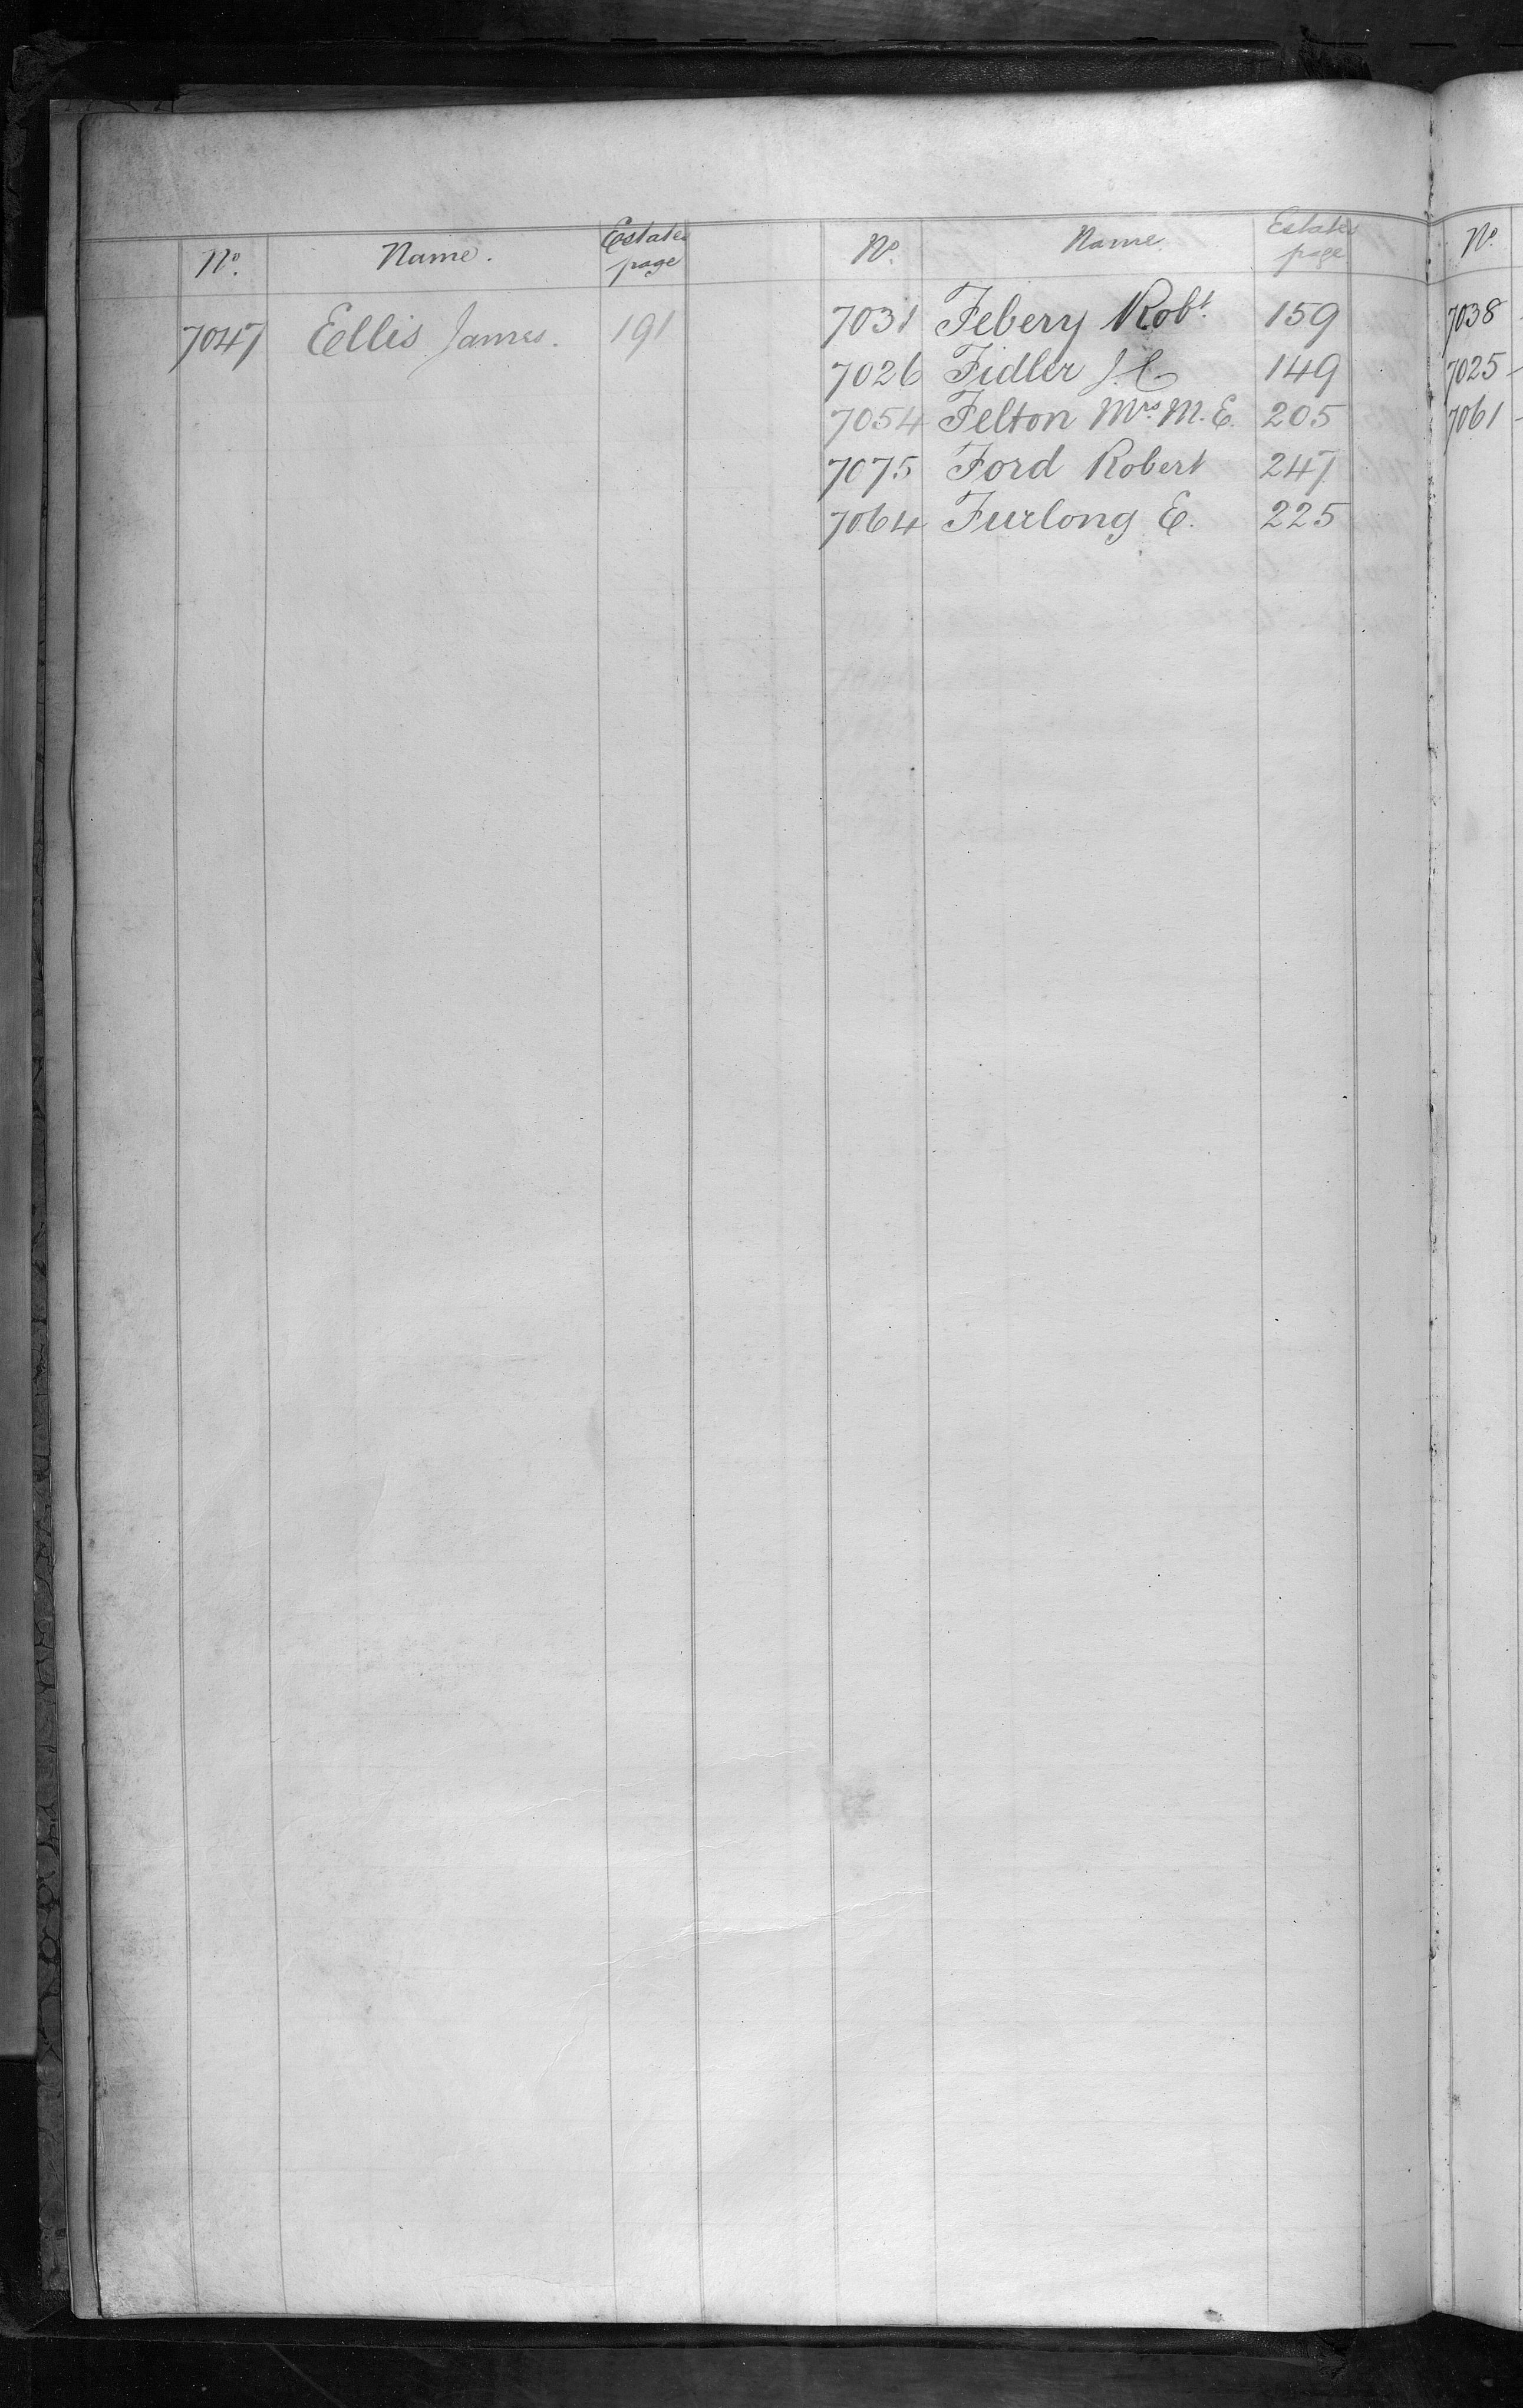 No. Name. Estates page
7047 Ellis James. 191
No. Name Estates page
7031 Febery Robt. 159
7026 Fidler J. C 149
7054 Felton Mrs. M. E. 205
7075 Ford Robert 247
7064 Furlong E. 225
No.
7038
7025
7061